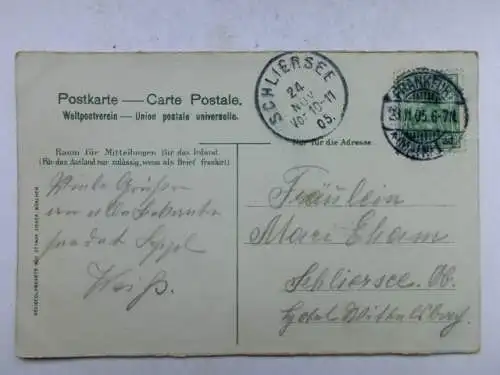 Postkarte — Carte Postale.
Weltpostverein — Union postale universelle.
SCHLIERSEE
24
NOV
Vo. 10-11
05.
FRANKFURT
23.11.05. 6-7N.
Raum für Mitteilungen für das Inland.
(Für das Ausland nur zulässig, wenn als Brief frankirt)
Nur für die Adresse
Viele Grüße
an alle Bekannte
sendet
Weiß.
Fräulein
Mari
Schliersee. Ob.
Hotel Wittelsbach.